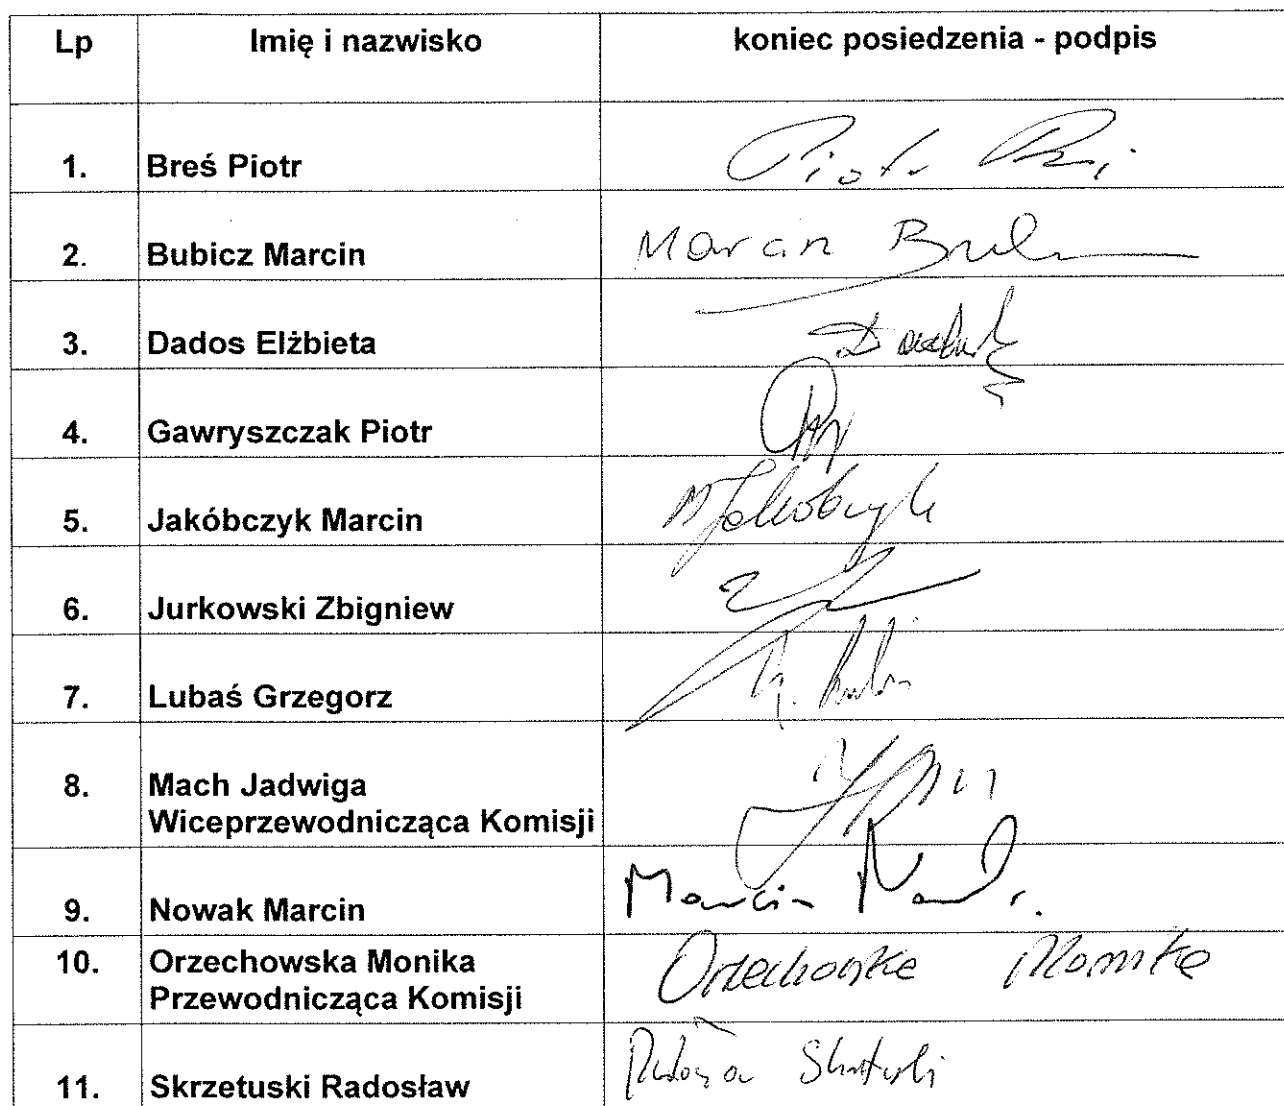 Lp Imię i nazwisko koniec posiedzenia - podpis
1. Breś Piotr Piotr
2. Bubicz Marcin Marcin
3. Dados Elżbieta
4. Gawryszczak Piotr
5. Jakóbczyk Marcin M Jakóbczyk
6. Jurkowski Zbigniew
7. Lubaś Grzegorz
8. Mach Jadwiga
Wiceprzewodnicząca Komisji
9. Nowak Marcin Marcin
10. Orzechowska Monika Orzechowska Monika
Przewodnicząca Komisji
11. Skrzetuski Radosław